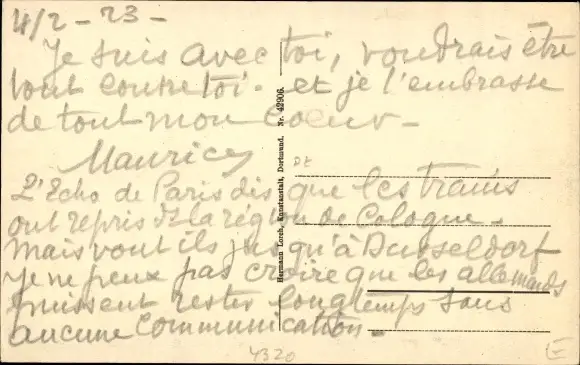 4/2 - 23 -
Je suis avec toi, voudrais être
tout contre toi - et je t'embrasse
de tout mon Coeur -
Maurice
L'Echo de Paris dis que les trains
ont repris ds la région de Cologne -
mais vont ils jusqu'à Dusseldorf
Je ne peux pas croire que les allemands
puissent rester longtemps sans
aucune Communication.
Hermann Lorch, Kunstanstalt, Dortmund. Nr. 42906.
DE
4320
E